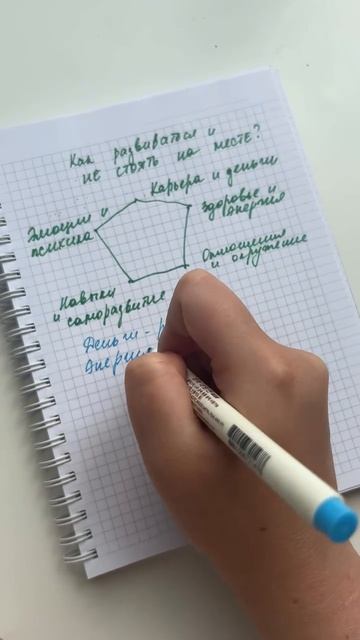 Как развиваться и
не стоять на месте?
Карьера и деньги
Здоровье и
энергия
Эмоции и
психика
Отношения
и окружение
Навыки
и саморазвитие
Деньги -